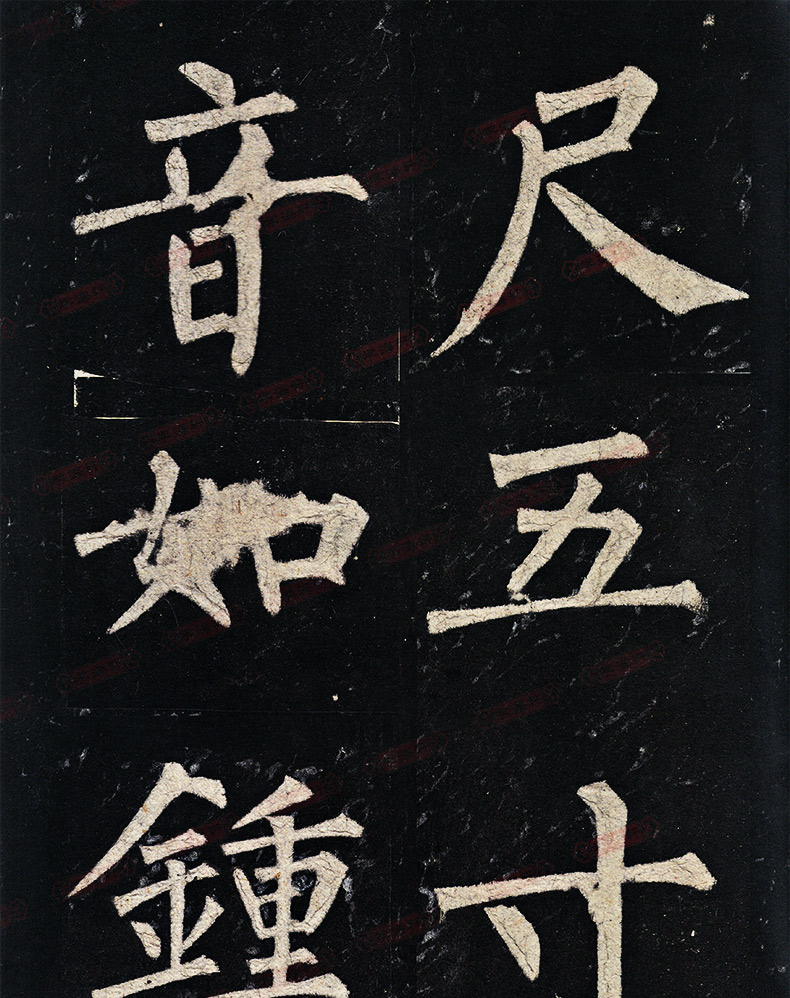 尺五寸
音如鍾